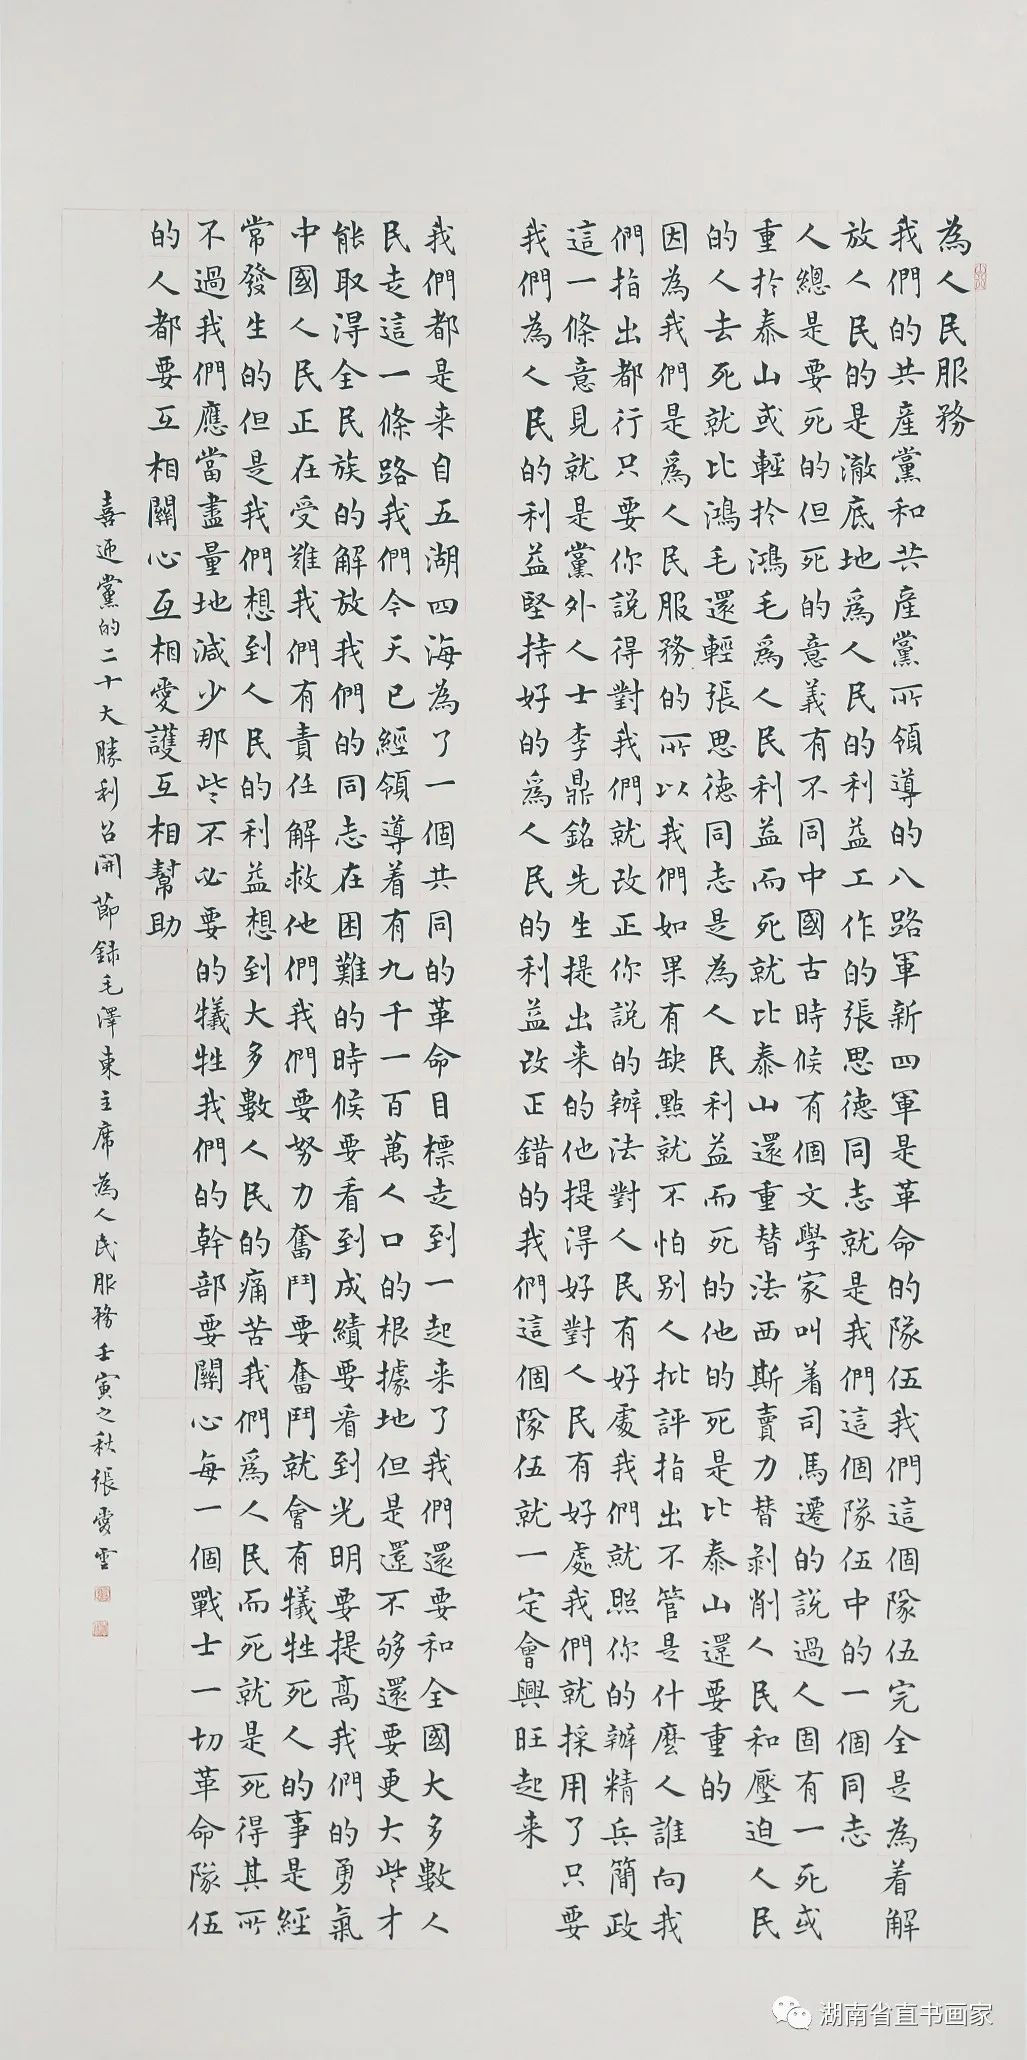 為人民服務
我們的共產黨和共產黨所領導的八路軍新四軍是革命的隊伍我們這個隊伍完全是為着解
放人民的是澈底地爲人民的利益工作的張思德同志就是我們這個隊伍中的一個同志
人總是要死的但死的意義有不同中國古時候有個文學家叫着司馬遷的說過人固有一死或
重於泰山或輕於鴻毛爲人民利益而死就比泰山還重替法西斯賣力替剝削人民和壓迫人民
的人去死就比鴻毛還輕張思德同志是為人民利益而死的他的死是比泰山還要重的
因為我們是爲人民服務的所以我們如果有缺點就不怕别人批評指出不管是什麼人誰向我
們指出都行只要你説得對我們就改正你説的辦法對人民有好處我們就照你的辦精兵簡政
這一條意見就是黨外人士李鼎銘先生提出来的他提得好對人民有好處我們就採用了只要
我們為人民的利益堅持好的爲人民的利益改正錯的我們這個隊伍就一定會興旺起来
我們都是来自五湖四海為了一個共同的革命目標走到一起来了我們還要和全國大多數人
民走這一條路我們今天已經領導着有九千一百萬人口的根據地但是還不够還要更大些才
能取得全民族的解放我們的同志在困難的時候要看到成績要看到光明要提高我們的勇氣
中國人民正在受難我們有責任解救他們我們要努力奮鬥要奮鬥就會有犧牲死人的事是經
常發生的但是我們想到人民的利益想到大多數人民的痛苦我們爲人民而死就是死得其所
不過我們應當盡量地減少那些不必要的犧牲我們的幹部要關心每一個戰士一切革命隊伍
的人都要互相關心互相愛護互相幫助
喜迎黨的二十大勝利召開節録毛澤東主席為人民服務壬寅之秋張雯雪
湖南省直书画家